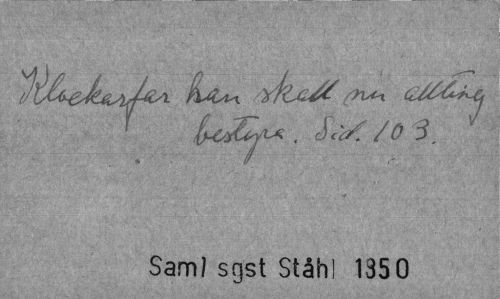 Klockarfar han skall nu allting
bestyra. Sid. 103.
Saml sgst Ståhl 1850